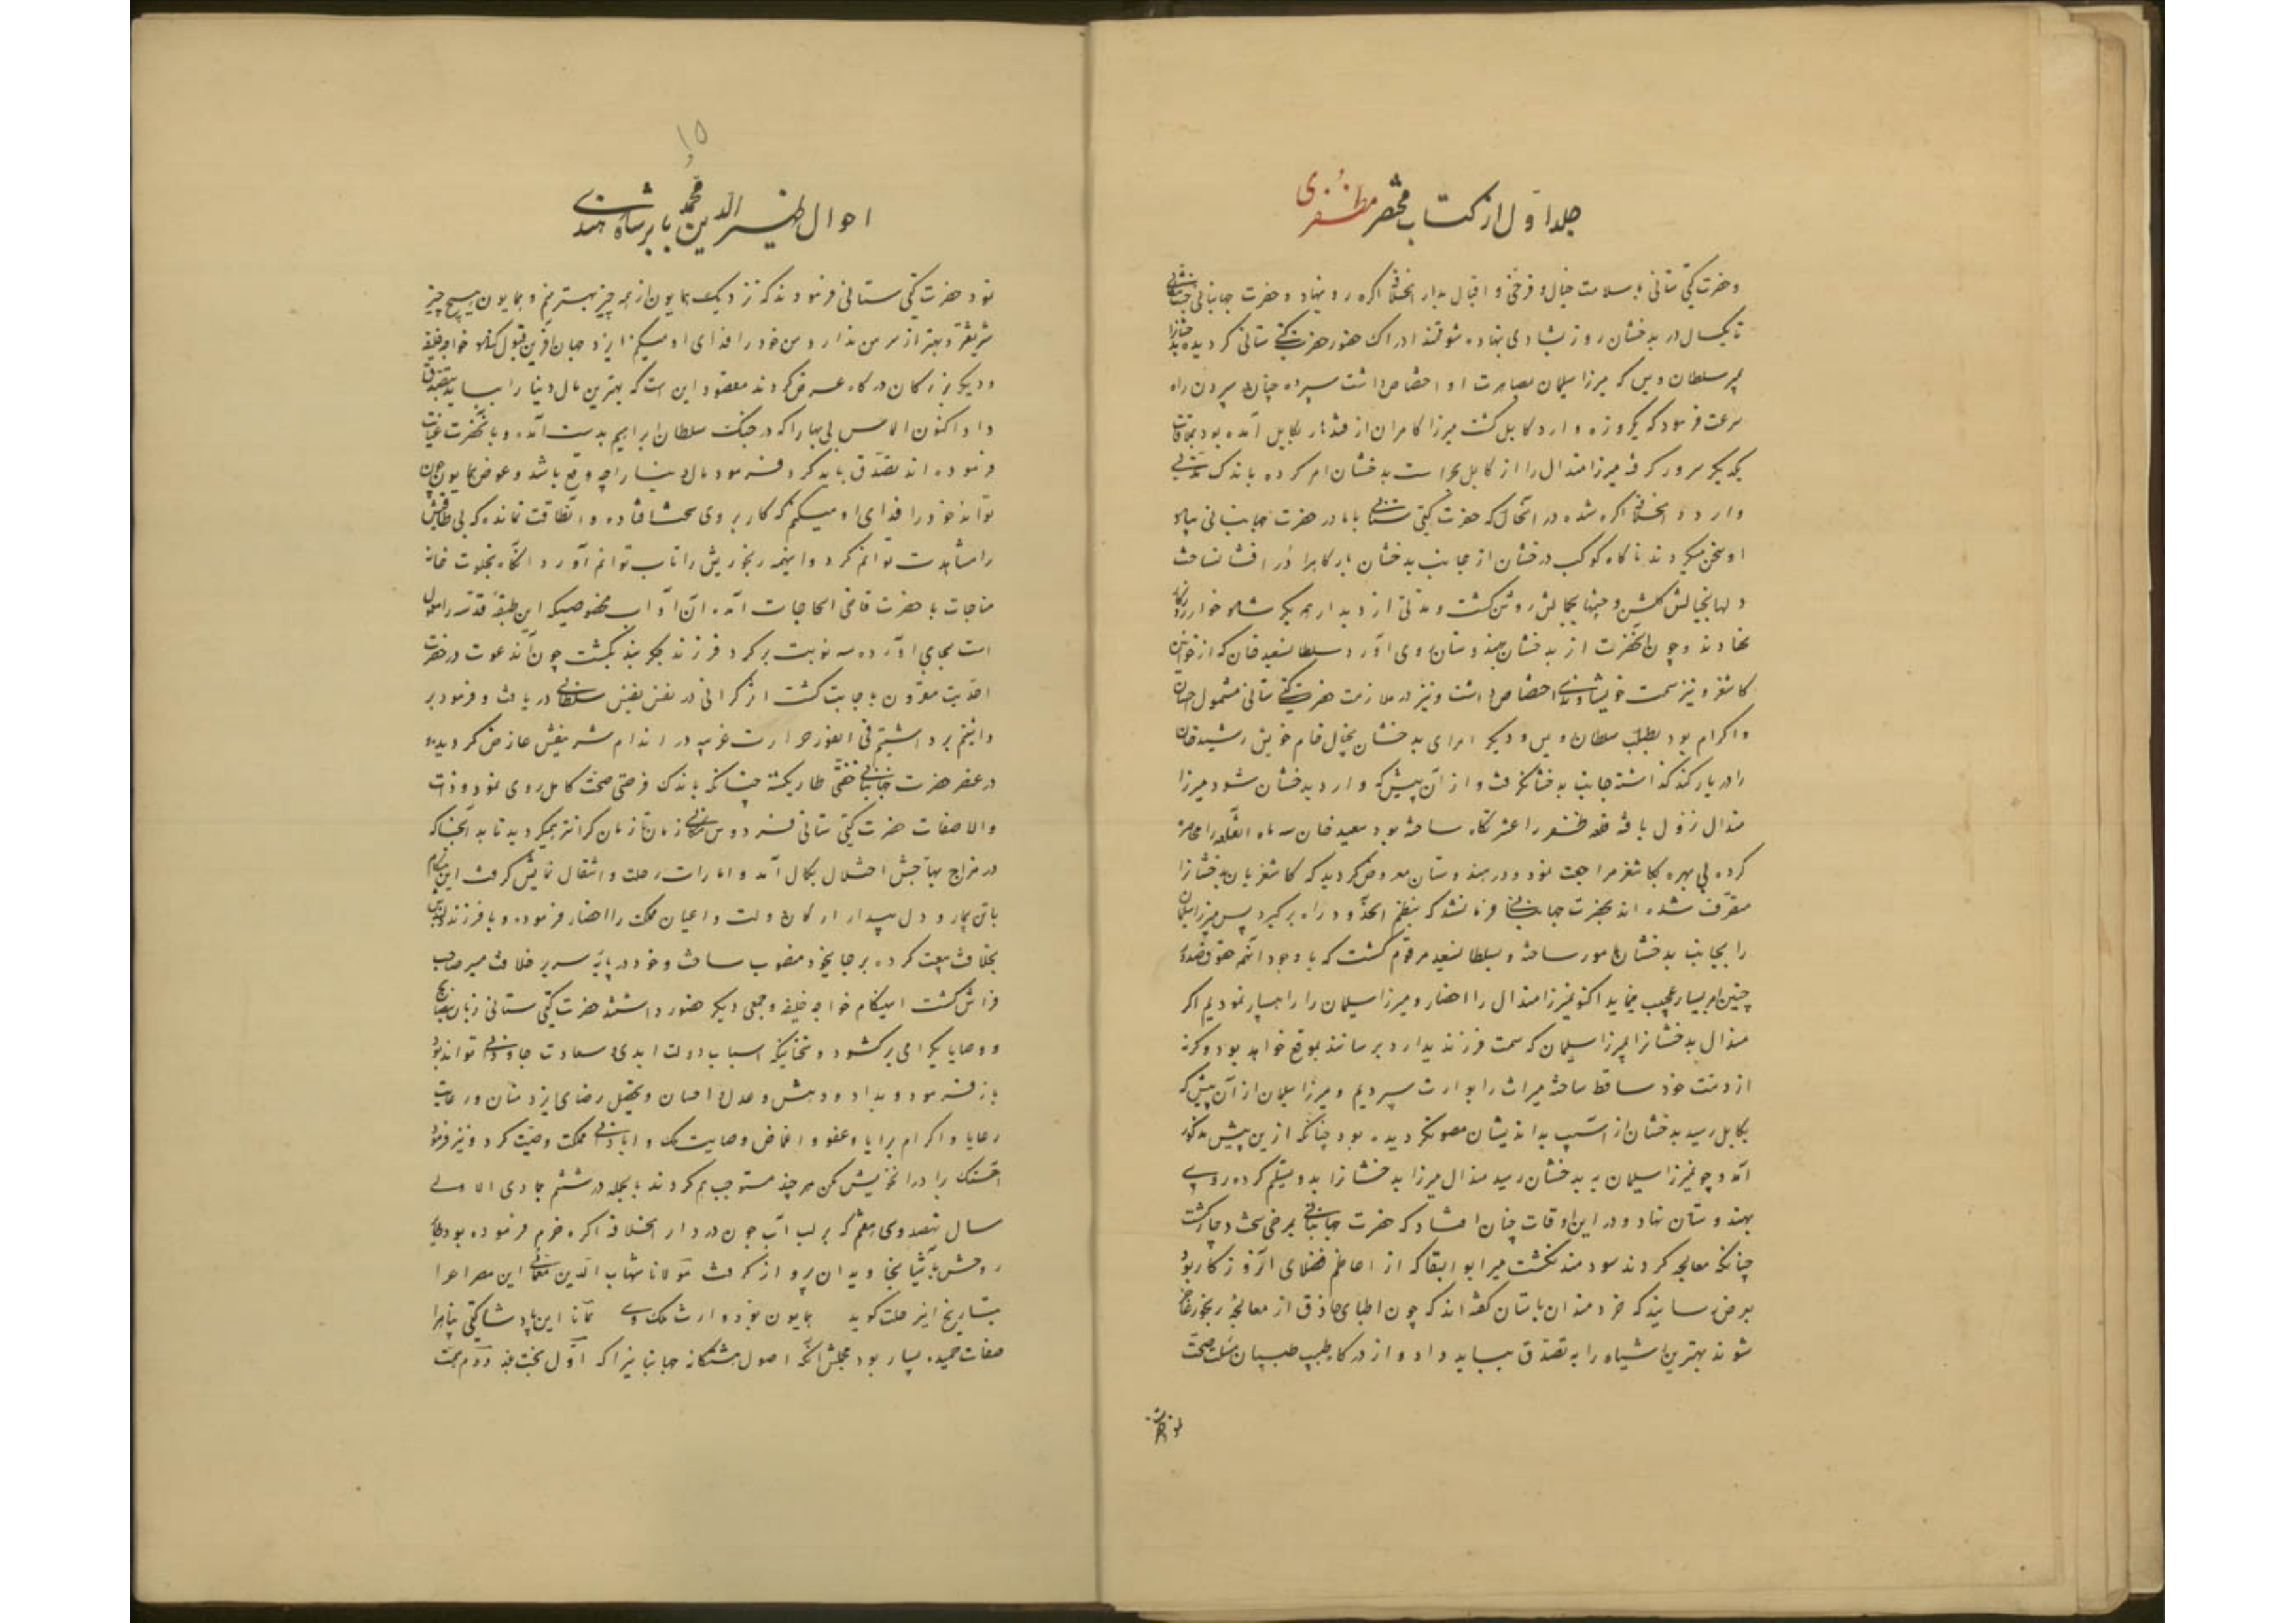 جلد اول از کتاب مختصر مظفری
و حضرت گیتی ستانی بسلامت خیال و فرخی و اقبال بدار الخلافة اکره رو نهاد و حضرت جهانبانی
تا یکسال در بدخشان روز بشادی نهاده شوقمند ادراک حضور حضرت گیتی ستانی کردیده
بمیر سلطان ویس که میرزا سلیمان بمصاهرت او اختصاص داشت سپرده چنان سپردن راه
سرعت فرمود که یکروزه وارد کابل کشت میرزا کامران از قندهار بکابل آمده بود بملاقات
یکدیکر مسرور کرفته میرزا هندال را از کابل بحراست بدخشان امر کرده باندک مدتی
وارد دار الخلافة اکره شده در آنحال که حضرت گیتی ستانی با مادر حضرت جهانبانی بیاد
او سخن میکردند ناکاه کوکب درخشان از جانب بدخشان بارکاهرا در افشان ساخت
دلها بخیالش کلشن و چشمها بجمالش روشن کشت و مدتی از دیدار همدیکر شاد خوار
نهادند و چون آنحضرت از بدخشان بهندوستان روی آورد سلطان سعید خان که از خوانین
کاشغر و نیز سمت خویشاوندی اختصاص داشت و نیز در ملازمت حضرت گیتی ستانی مشمول احسان
و اکرام بود بطلب سلطان ویس و دیکر امرای بدخشان بخیال خام خویش رشید خان
را در یارکند کذاشته جانب بدخشان کرفت و از آن پیش که وارد بدخشان شود میرزا
هندال نزول یافته قلعه ظفر را عشرتکاه ساخته بود سعید خان سه ماه القلعه را محاصره
کرده بی بهره بکاشغر مراجعت نمود و در هندوستان معروض کردید که کاشغریان بدخشانرا
متصرف شده اند بحضرت جهانبانی فرمان شد که بنظم آنحدود راه برگیرد پس میرزا سلیمان
را بجانب بدخشان مامور ساخته و بسلطان سعید مرقوم کشت که با وجود آنهمه حقوق
چنین امر بسیار عجیب مینماید اکنون میرزا هندال را احضار و میرزا سلیمان را راهسپار نمودیم اکر
هندال بدخشانرا بمیرزا سلیمان که سمت فرزندی دارد برسانند بموقع خواهد بود وکرنه
از ذمت خود ساقط ساخته میراث را بوارث سپردیم و میرزا سلیمان از آن پیش که
بکابل رسید بدخشان از آسیب بداندیشان مصون کردیده بود چنانکه ازین پیش مذکور
آمد و چون میرزا سلیمان به بدخشان رسید هندال میرزا بدخشانرا بدو تسلیم کرده روی
بهندوستان نهاد و در این اوقات چنان افتاد که حضرت جهانبانی بمرضی سخت دچار کشت
چنانکه معالجه کردند سودمند نکشت میر ابو البقا که از اعاظم فضلای آنروزکار بود
بعرض رسانید که خردمندان باستان کفته اند که چون اطبای حاذق از معالجه رنجور عاجز
شوند بهترین اشیاء را به تصدق بباید داد و از درکاه طبیب طبیبان مسئلت صحت
۱۵
احوال ظهیر الدین محمد بابر شاه هندی
نمود حضرت گیتی ستانی فرمودند که نزدیک همایون از همه چیز بهتر منم و همایون هیچ چیز
شریفتر و بهتر از سر من ندارد من خود را فدای او میکنم ایزد جهان آفرین قبول کناد خواجه خلیفه
و دیکر بزرکان درکاه عرض کردند مقصود این است که بهترین مال دنیا را بباید بتصدق
داد اکنون الماس بی بها را که در جنک سلطان ابراهیم بدست آمده و بآنحضرت عنایت
فرموده اند تصدق باید کرد فرمود مال دنیا را چه وقع باشد و عوض همایون چون
تواند خود را فدای او میکنم که کار بر وی سخت افتاده و آنطاقت نمانده که بی طاقتیش
را مشاهدت توانم کرد و اینهمه رنجوریش را تاب توانم آورد آنکاه بخلوت خانه
مناجات با حضرت قاضی الحاجات آمده آن آداب مخصوصیکه این طبقهٔ قدسیه را معمول
است بجای آورده سه نوبت بر کرد فرزند جگر بند بگشت چون آندعوت در حضرت
احدیت مقرون باجابت کشت اثر گرانی در نفس نفیس سلطانی دریافت و فرمود بر
داشتیم برداشتیم فی الفور حرارت غریبه در اندام شریفش عارض کردیده
در عنصر حضرت جهانبانی خفتی طاری کشته چنانکه باندک فرصتی صحت کامل روی نمود و ذات
والا صفات حضرت گیتی ستانی فردوس مکانی زمان تا زمان گرانتر همیکردید تا بدانجا که
در مزاج بهاجتش اختلال بکمال آمد و امارات رحلت و انتقال نمایش کرفت این هنکام
با تن بیمار و دل بیدار ارکان دولت و اعیان مملکت را احضار فرموده و با فرزند
بخلافت بیعت کرده بر جای خود منصوب ساخت و خود در پایه سریر خلافت مصیر صاحب
فراش کشت اینهنکام خواجه خلیفه و جمعی دیکر حضور داشتند حضرت گیتی ستانی زبان بنصایح
و وصایای گرامی برکشود و سخنانیکه اسباب دولت ابدی و سعادت جاودانی تواند بود
باز فرمود و بداد و دهش و عدل و احسان و تحصیل رضای یزدمنان و رعایت
رعایا و اکرام برایا و عفو و اغماض و حمایت ملک و آبادانی مملکت وصیت کرد و نیز فرمود
آهنک برادران خویش مکن هر چند مستوجب هم کردند بالجمله در ششم جمادی الاولی
سال نهصد و سی و هفتم که بر لب آب جون در دار الخلافه اکره خرم فرموده بود طایر
روحش بآشیان جاویدان پرواز کرفت مولانا شهاب الدین معمائی این مصراع را
بتاریخ این رحلت کوید همایون بود وارث ملک وی همانا این پادشاه گیتی پناهرا
صفات حمیده بسیار بود مجملش آنکه اصول هشتکانه جهانبانیرا که اول بخت بلند دوم همت